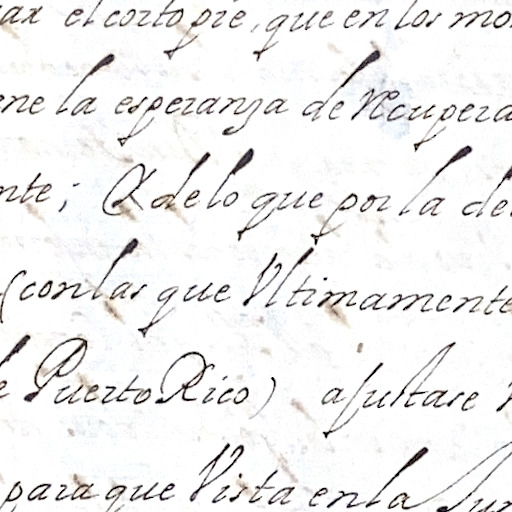 el corto pie, que en los mo
ene la esperanza de recupera
nte; Y de lo que por la de
(con las que Ultimamente
e Puerto Rico) ajustase
para que Vista en la Jun